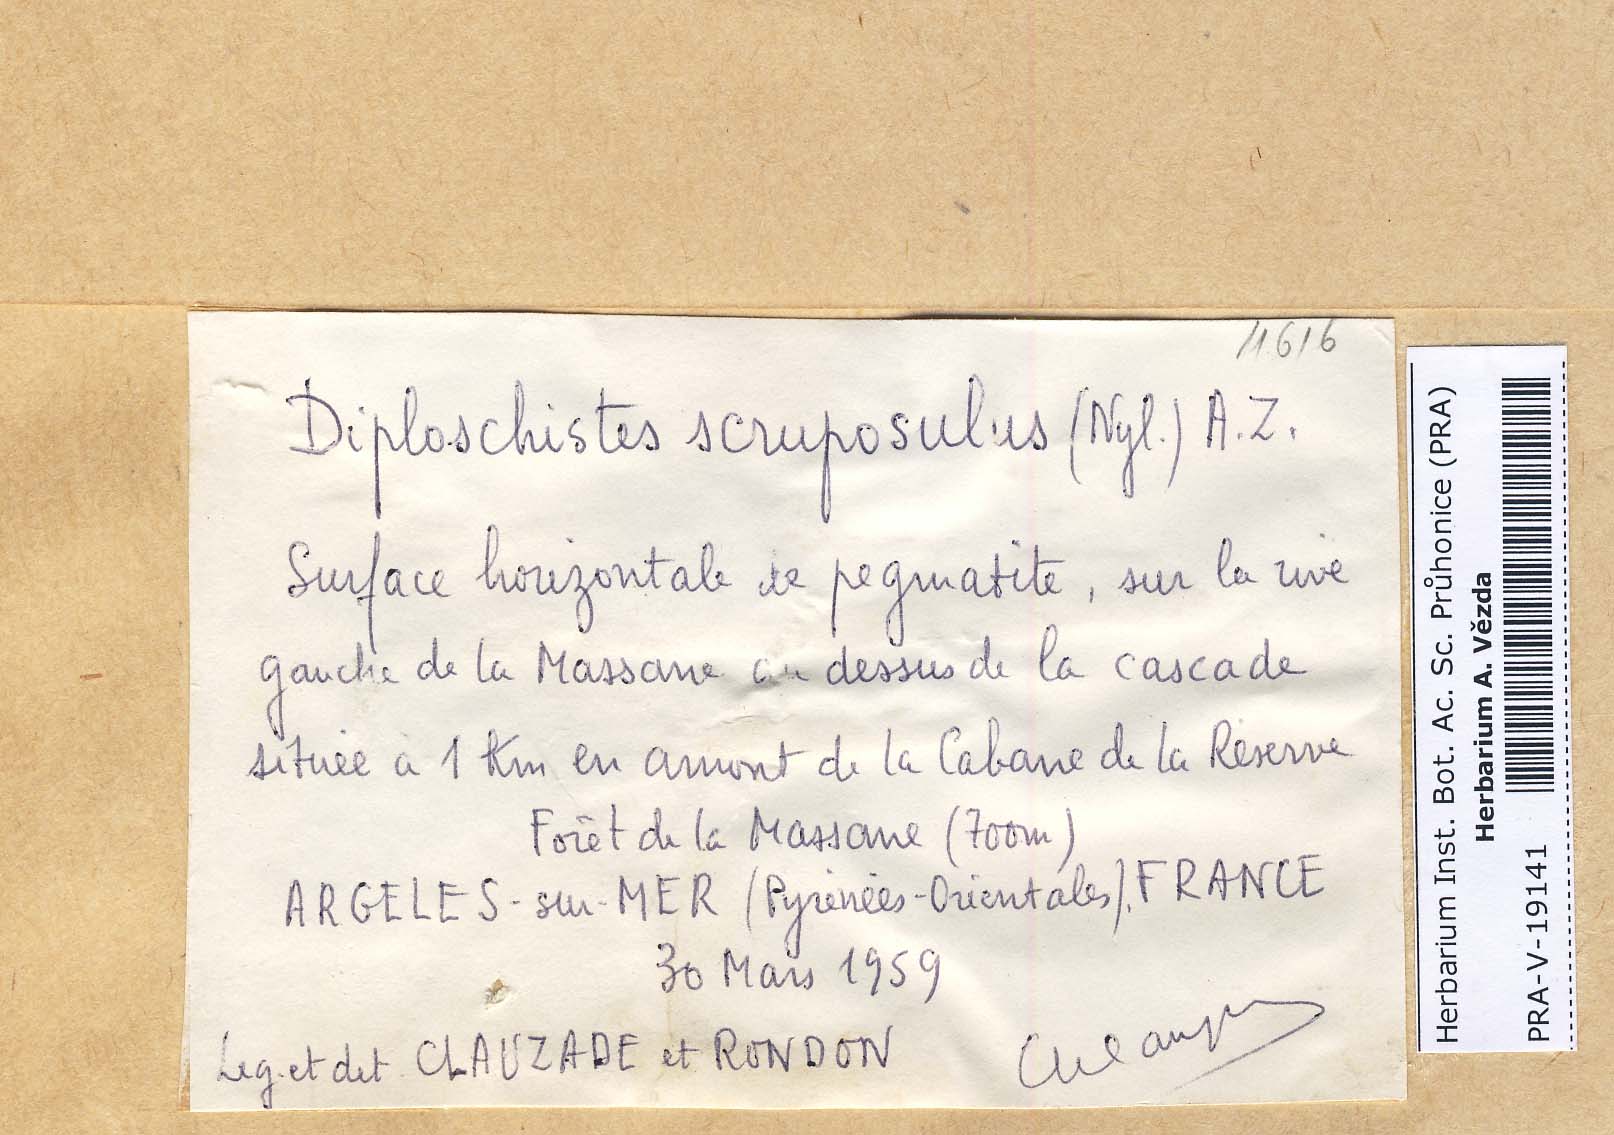 11616
Diploschistes scruposulus (Nyl.) A.Z.
Surface horizontale de pegmatite, sur la rive
gauche de la Massane au dessus de la cascade
située à 1 Km en amont de la Cabane de la Réserve
Forêt de la Massane (700m)
ARGELES-sur-MER (Pyrénées-Orientales). FRANCE
30 Mars 1959
Leg. et det. CLAUZADE et RONDON
Herbarium Inst. Bot. Ac. Sc. Průhonice (PRA)
Herbarium A. Vězda
PRA-V-19141